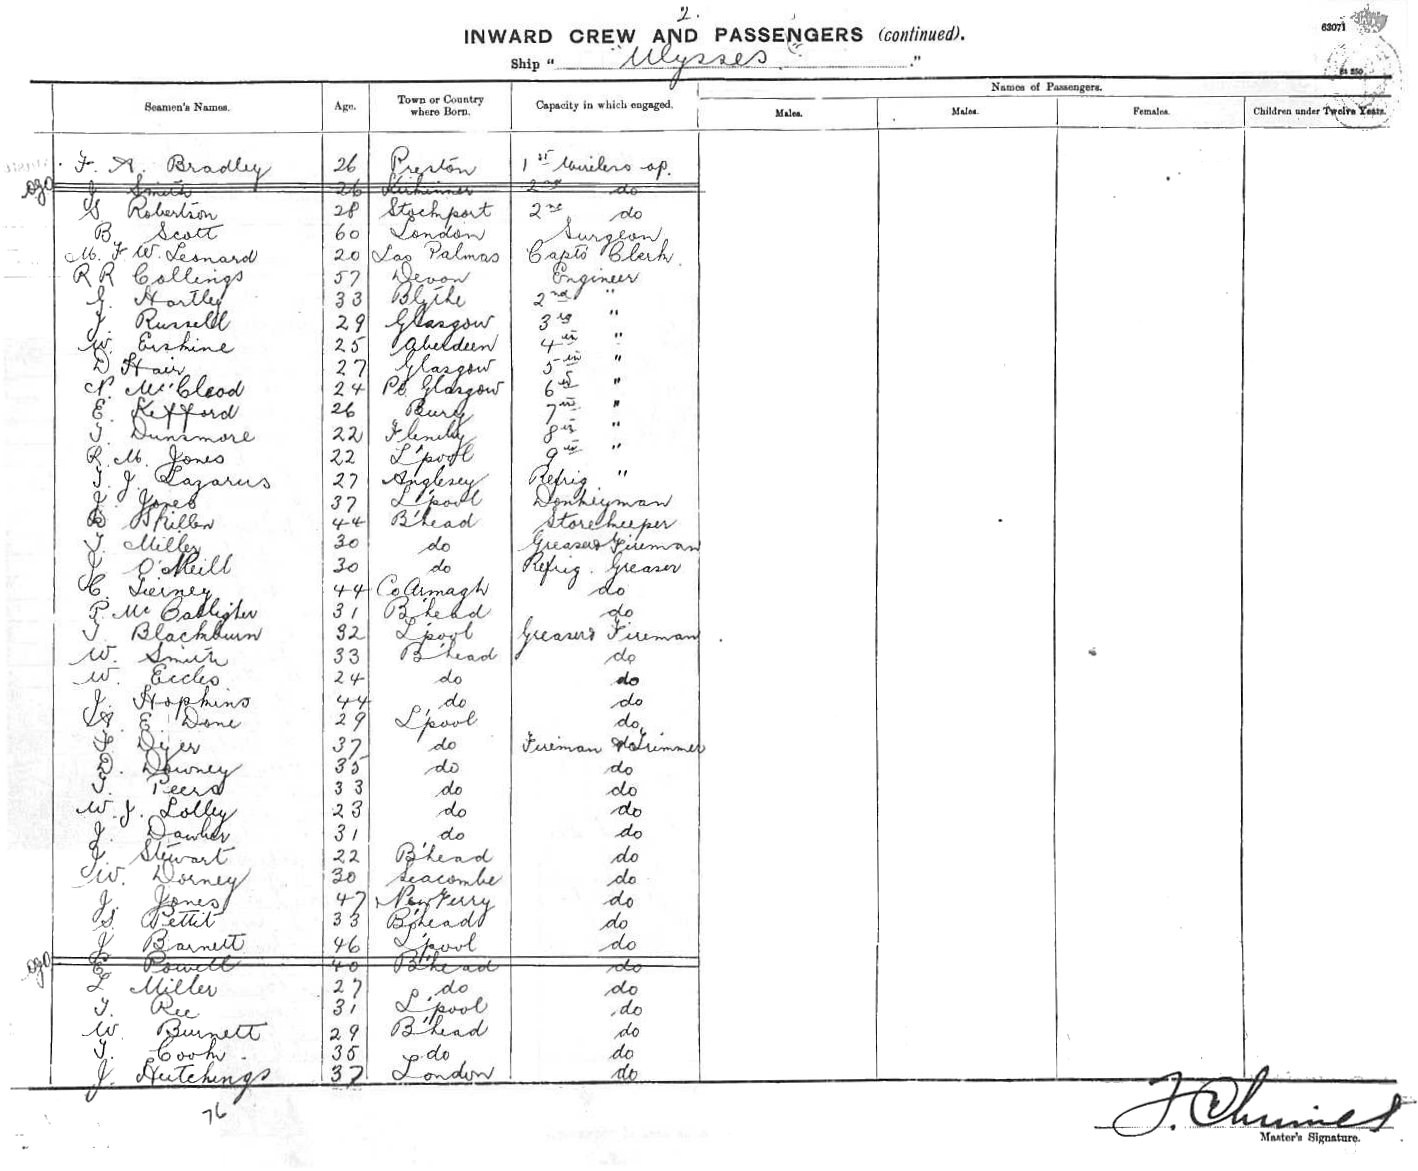 2.
INWARD CREW AND PASSENGERS (continued).
63071
Ship "Ulysses."
Names of Passengers.
Seamen's Names. Age. Town or Country where Born. Capacity in which engaged. Males. Males. Females. Children under Twelve Years.
F. A. Bradley 26 Preston 1st Wireless op.
J Smith 26 2nd do
G Robertson 28 Stockport 2nd do
B Scott 60 London Surgeon
M. F W. Leonard 20 Las Palmas Capts Clerk
R R Collings 57 Devon Engineer
J. Hartley 33 Blythe 2nd "
J. Russell 29 Glasgow 3rd "
W. Erskine 25 Aberdeen 4th "
D Hair 27 Glasgow 5th "
N. McCleod 24 Pt. Glasgow 6th "
E. Kefford 26 Bury 7th "
T. Dunsmore 22 8th "
R. M. Jones 22 L'pool 9th "
T. J. Lazarus 27 Anglesey Refrig. "
J. Jones 37 L'pool Donkeyman
B Skillen 44 B'head Storekeeper
T. Miller 30 do Greaser & Fireman
J O'Neill 30 do Refrig. Greaser
C. Tierney 44 Co Armagh do
P. Mc 31 B'head do
T. Blackburn 32 L'pool Greaser & Fireman
W. Smith 33 B'head do
W. Eccles 24 do do
J. Hopkins 44 do do
A E Done 29 L'pool do
F. Dyer 37 do Fireman & Trimmer
D. Downey 35 do do
T. Peers 33 do do
W. J. Lolley 23 do do
J. 31 do do
J. Stewart 22 B'head do
W. Dorney 30 Seacombe do
J. Jones 47 New Ferry do
S. Pettit 33 B'head do
J Barnett 46 L'pool do
E Powell 40 B'head do
L Miller 27 do do
T. Ree 31 L'pool do
W Burnett 29 B'head do
T. Cook 35 do do
J. Hutchings 37 London do
76
Master's Signature.